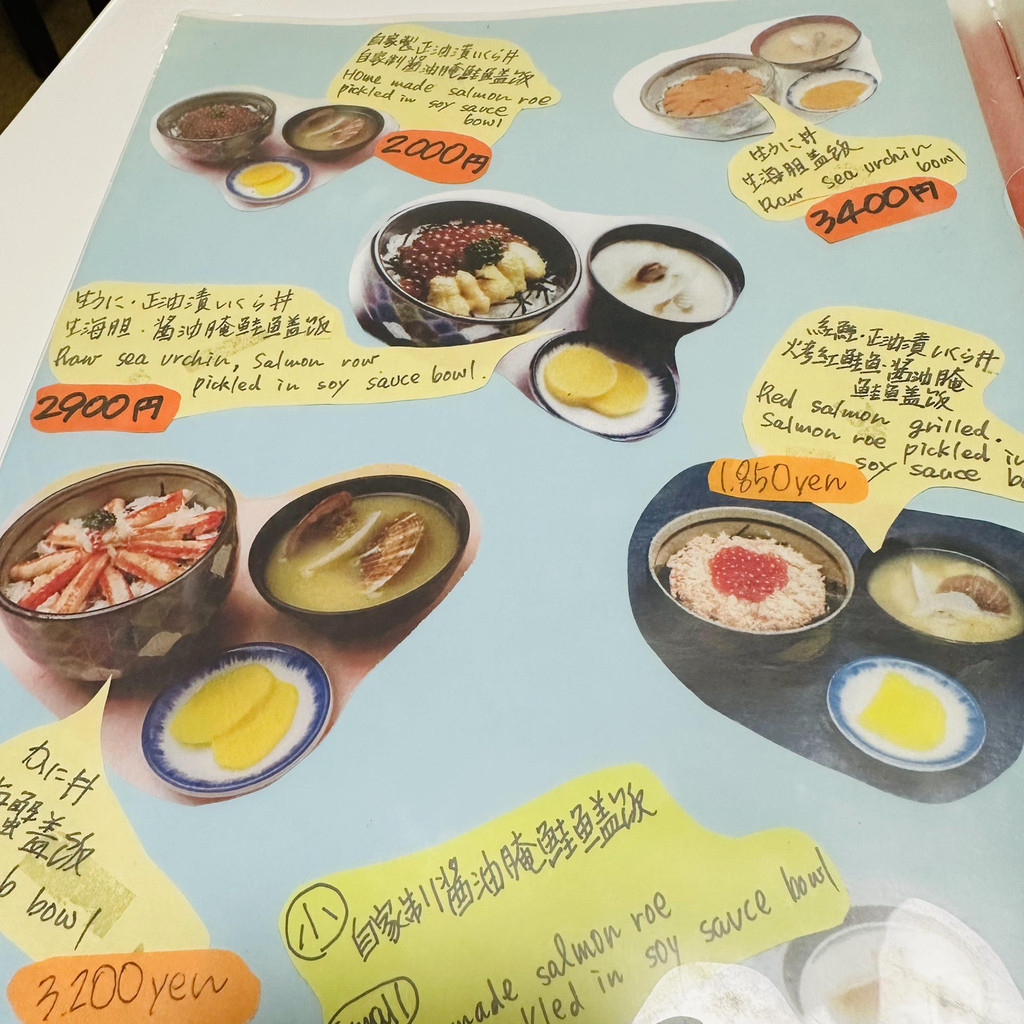 自家製 正油漬いくら丼
自家制酱油腌鮭鱼盖饭
Home made salmon roe
pickled in soy sauce
bowl
2000円
生うに丼
生海胆盖饭
Raw sea urchin bowl
3400円
生うに・正油漬いくら丼
生海胆・酱油腌鮭鱼盖饭
Raw sea urchin, Salmon row
pickled in soy sauce bowl.
2900円
紅鮭・正油漬いくら丼
烤红鮭鱼・酱油腌
鮭鱼盖饭
Red salmon grilled.
Salmon roe pickled in
soy sauce
1.850yen
かに丼
蟹盖饭
bowl
3.200yen
小 自家制酱油腌鮭鱼盖饭
made salmon roe
in soy sauce bowl